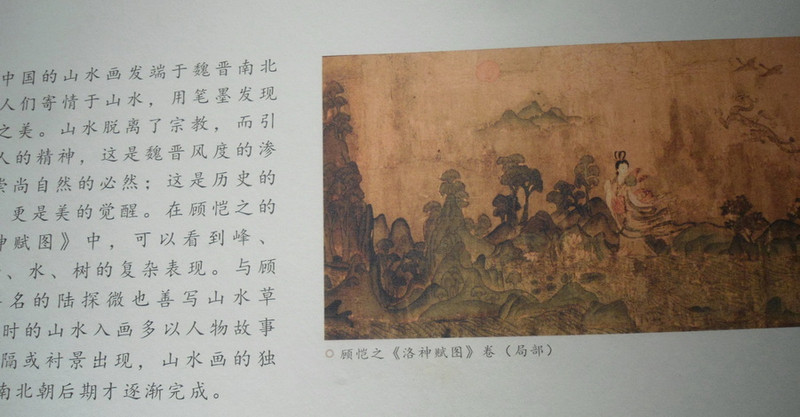 中国的山水画发端于魏晋南北
人们寄情于山水，用笔墨发现
之美。山水脱离了宗教，而引
人的精神，这是魏晋风度的渗
崇尚自然的必然；这是历史的
，更是美的觉醒。在顾恺之的
神赋图》中，可以看到峰、
、水、树的复杂表现。与顾
名的陆探微也善写山水草
时的山水入画多以人物故事
隔或衬景出现，山水画的独
南北朝后期才逐渐完成。
顾恺之《洛神赋图》卷（局部）